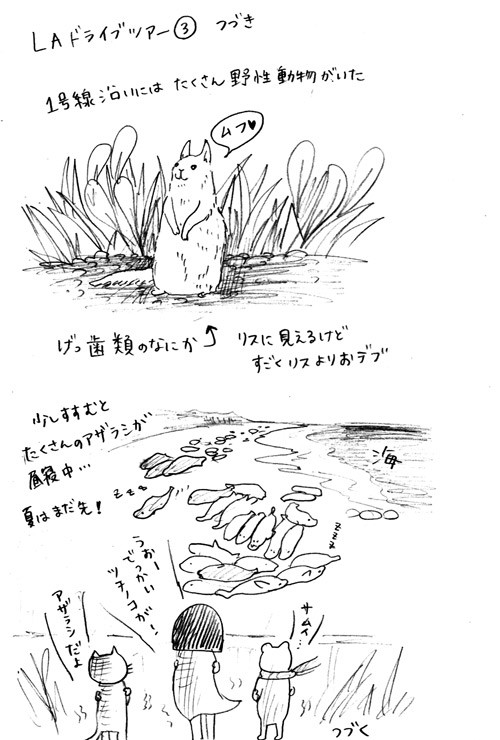 LAドライブツアー③ つづき
1号線沿いには たくさん野性動物がいた
ムフ♥
げっ歯類のなにか↑
リスに見えるけど
すごくリスよりおデブ
少しすすむと
たくさんのアザラシが
昼寝中…
夏はまだ先!
海
zzz
zzz
うおー
でっかい
ツチノコが!
アザラシだよ
サムイ…
つづく